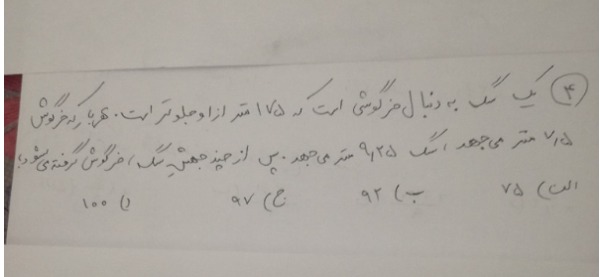 ۴) یک سگ به دنبال خرگوشی است که ۱۷۵ متر از او جلوتر است. هر بار که خرگوش
۷٫۵ متر می‌جهد، سگ ۹٫۲۵ متر می‌جهد. پس از چند جهشِ سگ، خرگوش گرفته می‌شود؟
الف) ۷۵ ب) ۹۲ ج) ۹۷ د) ۱۰۰